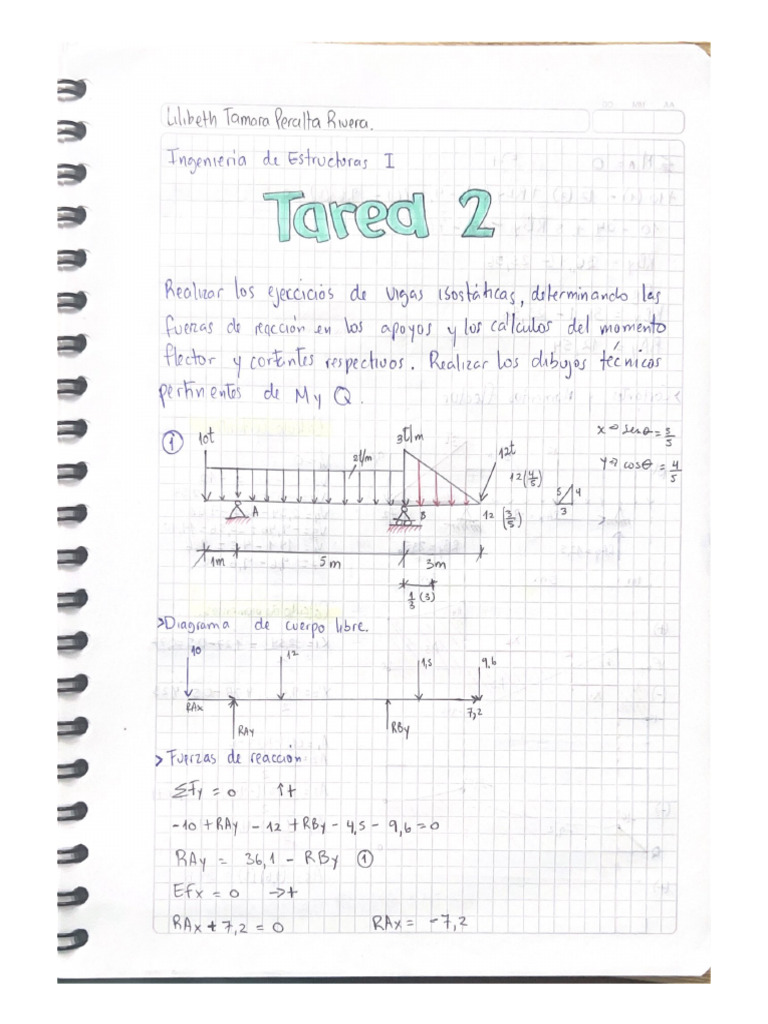 Lilibeth Tamara Peralta Rivera.
Ingeniería de Estructuras I
Tarea 2
Realizar los ejercicios de vigas isostáticas, determinando las
fuerzas de reacción en los apoyos y los cálculos del momento
flector y cortantes respectivos. Realizar los dibujos técnicos
pertinentes de M y Q.
①
10t
2t/m
3t/m
12t
12(4/5)
12(3/5)
x → senθ = 3/5
y → cosθ = 4/5
5 4
3
A
B
1m
5m
3m
1/3 (3)
>Diagrama de cuerpo libre.
10
12
4,5
9,6
RAx
7,2
RAy
RBy
> Fuerzas de reacción
ΣFy = 0 ↑+
-10 + RAy - 12 + RBy - 4,5 - 9,6 = 0
RAy = 36,1 - RBy ①
Efx = 0 →+
RAx + 7,2 = 0 RAx = -7,2